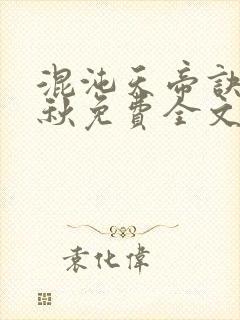 混沌天帝訣
秋免費全文
袁化偉